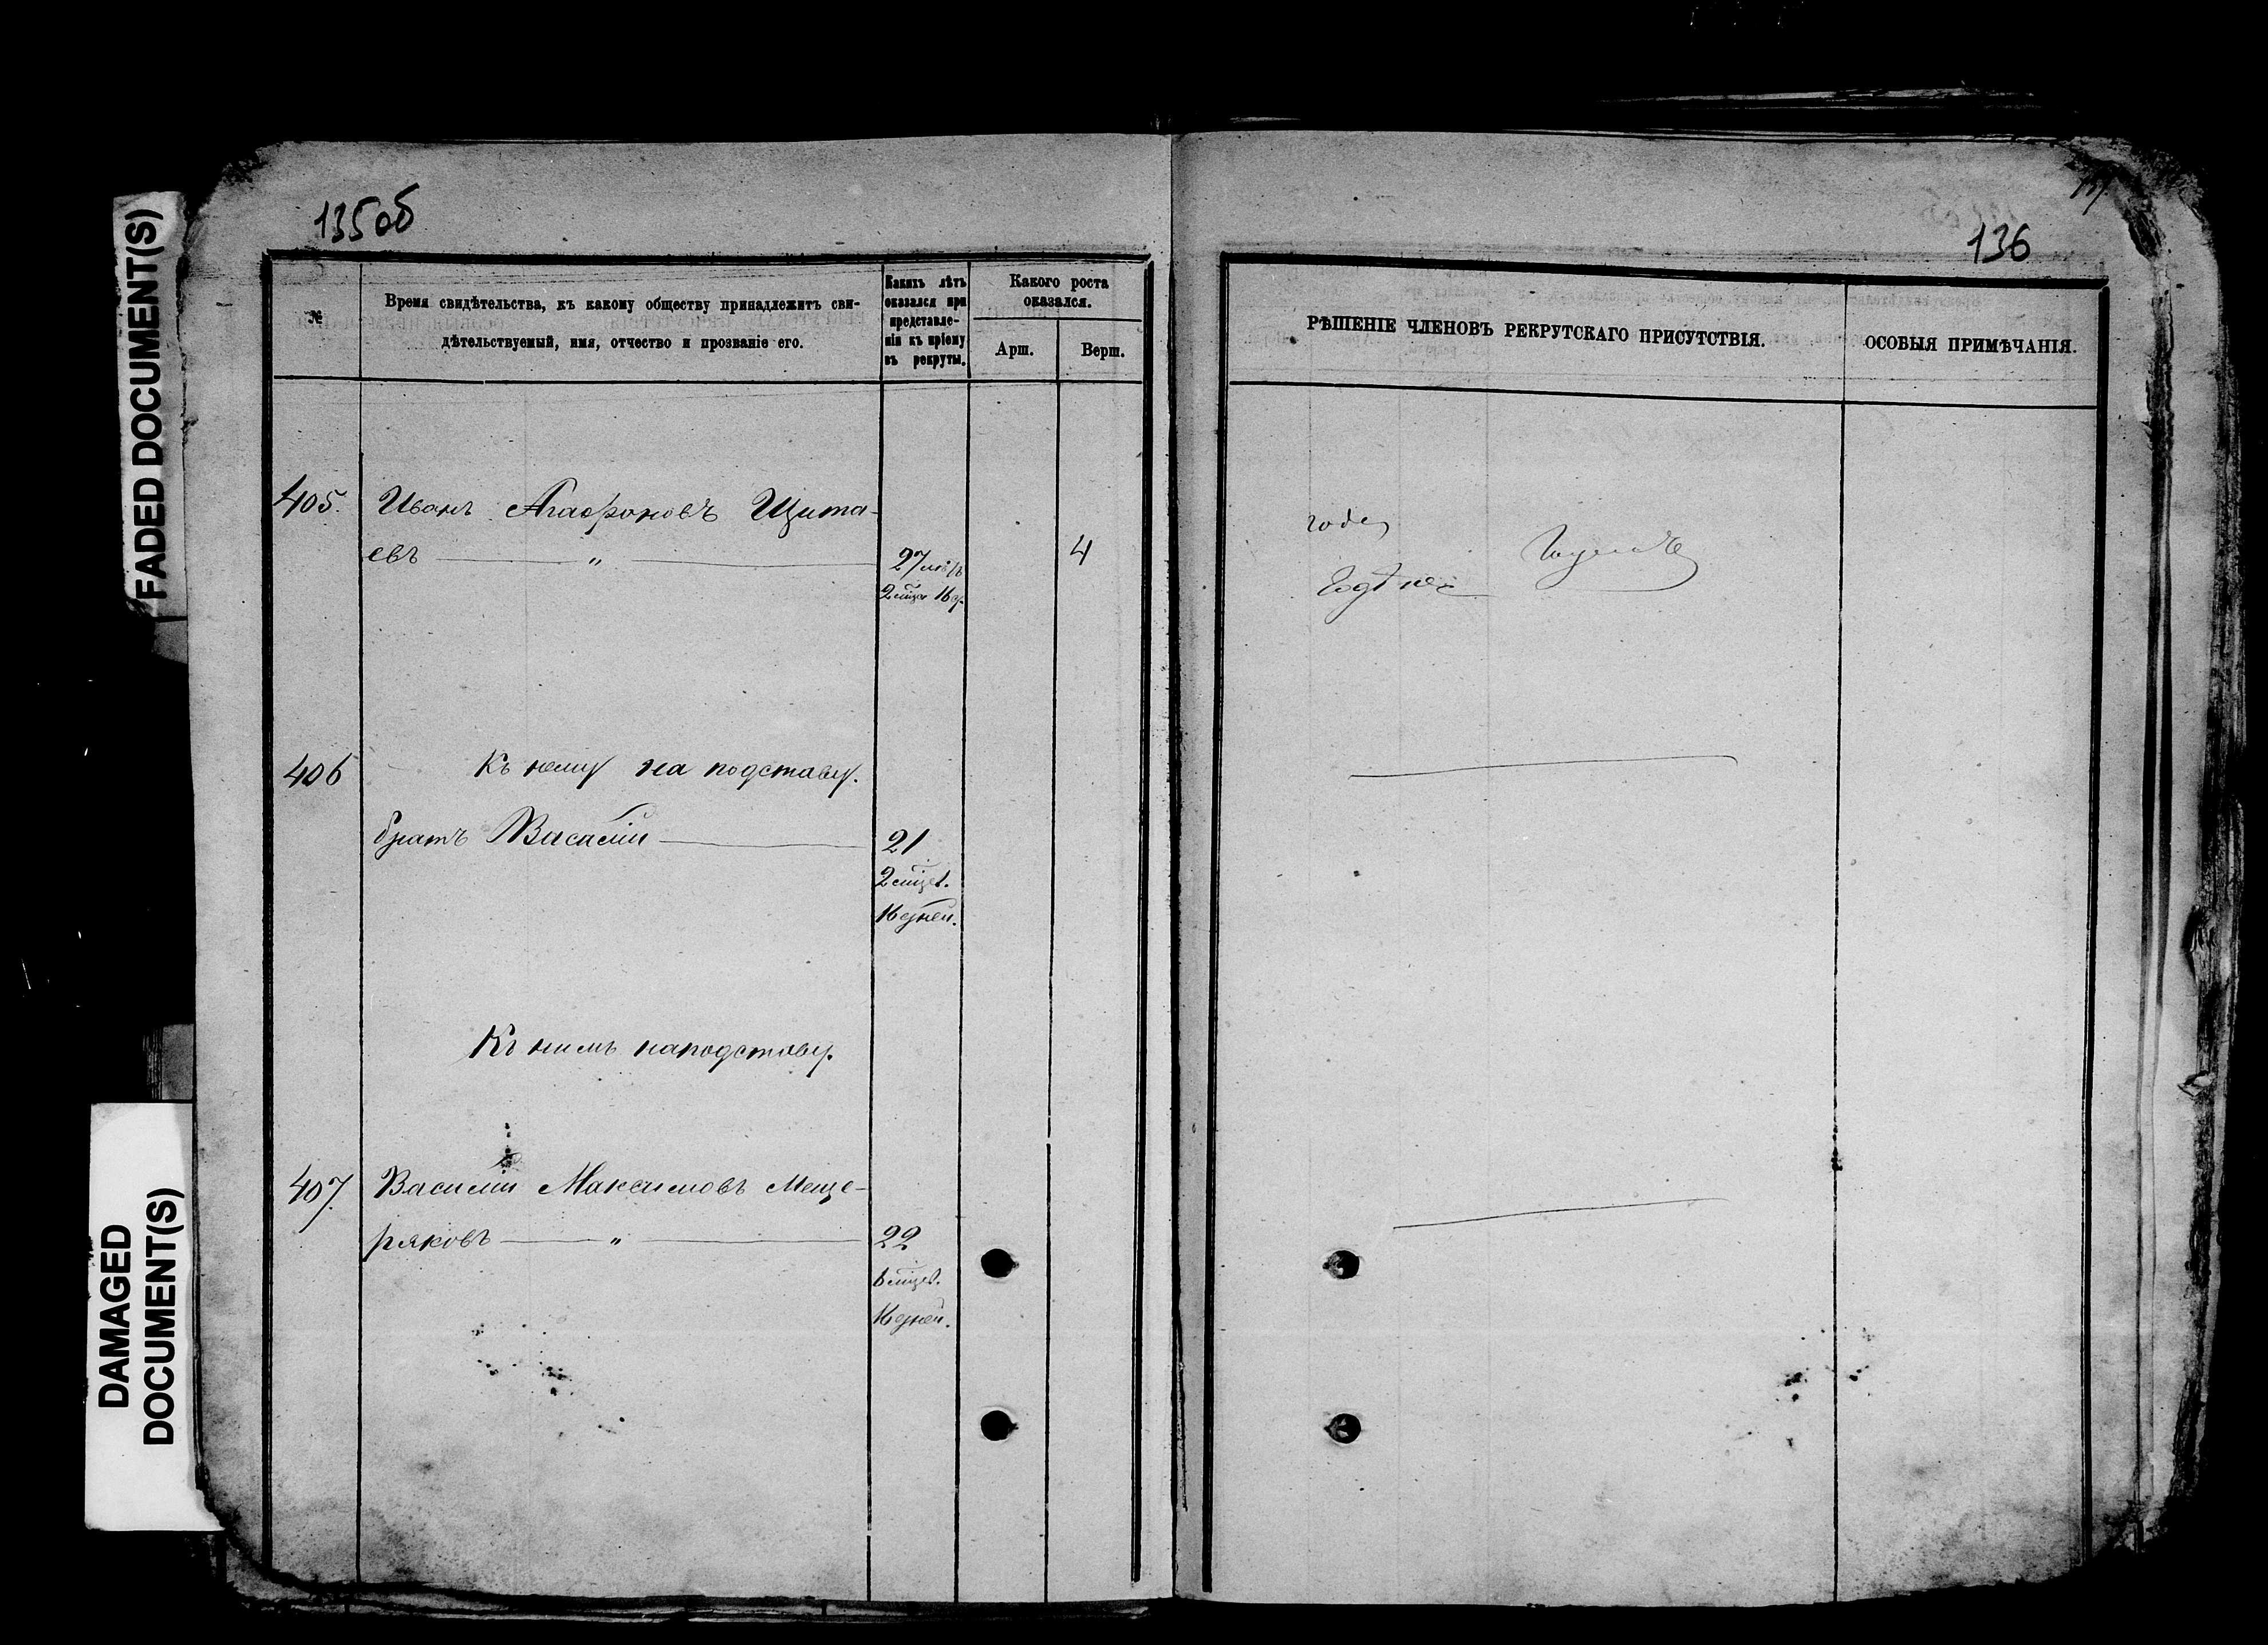 FADED DOCUMENT(S)
DAMAGED
DOCUMENT(S)
135об
№
Время свидѣтельства, къ какому обществу принадлежитъ сви-
дѣтельствуемый, имя, отчество и прозваніе его.
Какихъ лѣтъ
оказался при
представле-
ніи къ пріему
въ рекруты.
Какого роста
оказался.
Арш.
Верш.
405. Иванъ Агафоновъ Щита-
евъ — „ — 27 лѣтъ 4
2 мѣца 16 д.
406 Къ нему на подставу.
братъ Василій — 21
2 мѣцев.
16 дней.
Къ нимъ наподставу.
407. Василій Максимовъ Меще-
ряковъ — „ — 22
6 мѣцев.
16 дней.
136
РѢШЕНІЕ ЧЛЕНОВЪ РЕКРУТСКАГО ПРИСУТСТВІЯ.
ОСОБЫЯ ПРИМѢЧАНІЯ.
годен